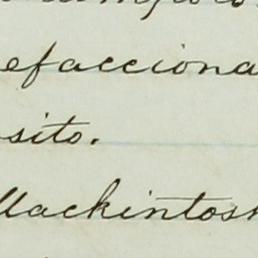 efacciona
sito.
Mackintosh